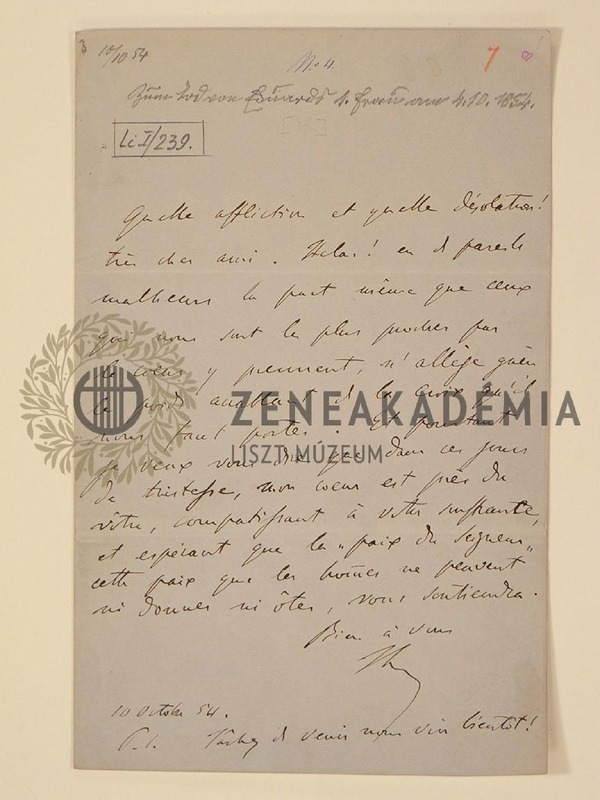 3 10/10 54
No 4.
7
Zum Tod von Eduards 1. Frau am 4.10.1854.
Li I/239.
Quelle affliction et quelle désolation!
très cher ami. Hélas! en de pareils
malheurs la part même que ceux
qui nous sont les plus proches par
le cœur y prennent, n'allège guère
le poids de la croix qu'il
nous faut porter! Et pourtant
je veux vous dire que dans ces jours
de tristesse, mon cœur est près du
vôtre, compatissant à votre souffrance,
et espérant que la „paix du Seigneur"
cette paix que les hommes ne peuvent
ni donner ni ôter, vous soutiendra.
Bien à vous
10 Octobre 54.
P. S. Tâchez de venir nous voir bientôt!
ZENEAKADÉMIA
LISZT MÚZEUM